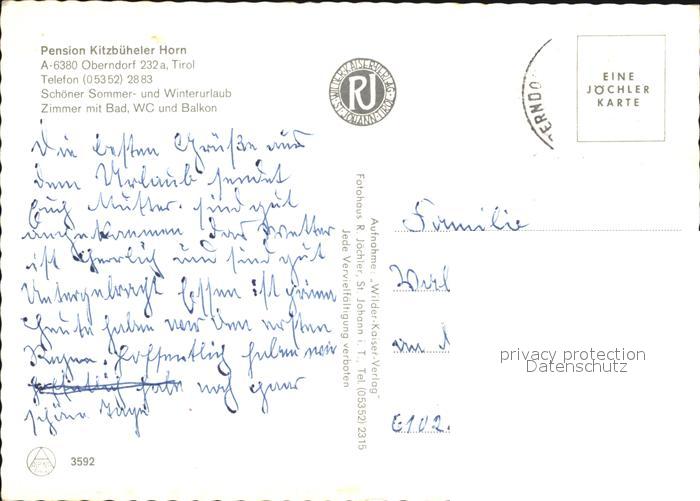 Pension Kitzbüheler Horn
A-6380 Oberndorf 232a, Tirol
Telefon (05352) 2883
Schöner Sommer- und Winterurlaub
Zimmer mit Bad, WC und Balkon
WILDER-KAISER-VERLAG
RJ
ST. JOHANN-TIROL
ERNDO
EINE
JÖCHLER
KARTE
Die besten Grüße aus
dem Urlaub sendet
Euch Mutter. sind gut
angekommen das Wetter
ist herrlich und sind gut
Untergebracht Essen ist prima
heute haben wir den ersten
Regen hoffentlich haben wir
noch paar
schöne Tage
Aufnahme: „Wilder-Kaiser-Verlag"
Fotohaus R. Jöchler, St. Johann i. T., Tel. (05352) 2315
Jede Vervielfältigung verboten
Familie
am
6102.
privacy protection
Datenschutz
3592